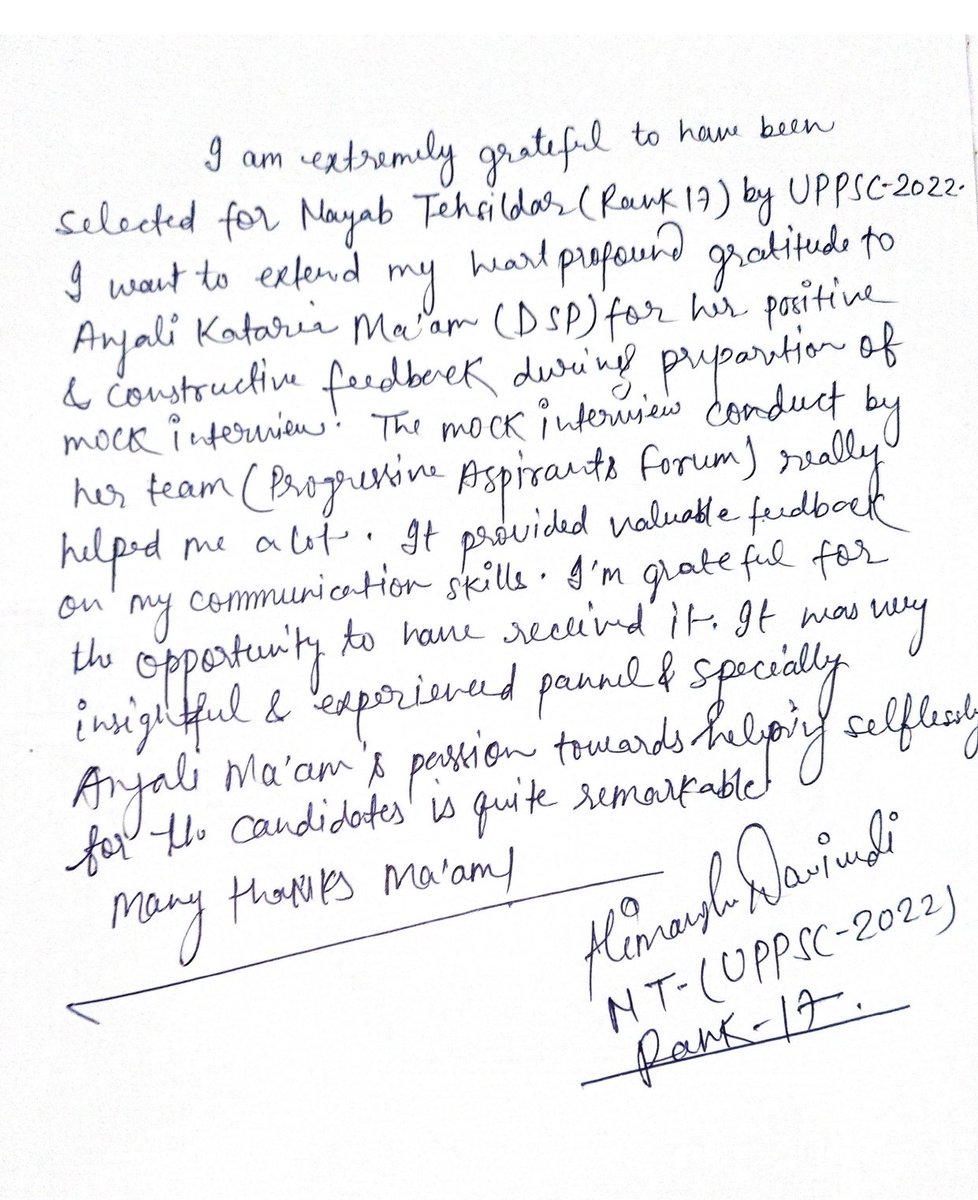 I am extremely grateful to have been
selected for Nayab Tehsildar (Rank 17) by UPPSC-2022.
I want to extend my heart profound gratitude to
Anjali Kataria Ma'am (DSP) for her positive
& constructive feedback during prepartion of
mock interview. The mock interview conduct by
her team (Progressive Aspirants Forum) really
helped me a lot. It provided valuable feedback
on my communication skills. I'm grateful for
the opportunity to have received it. It was very
insightful & experienced pannel & specially
Anjali Ma'am's passion towards helping selflessly
for the candidates is quite remarkable
Many thanks Ma'am!
Himanshu
NT-(UPPSC-2022)
Rank-17.